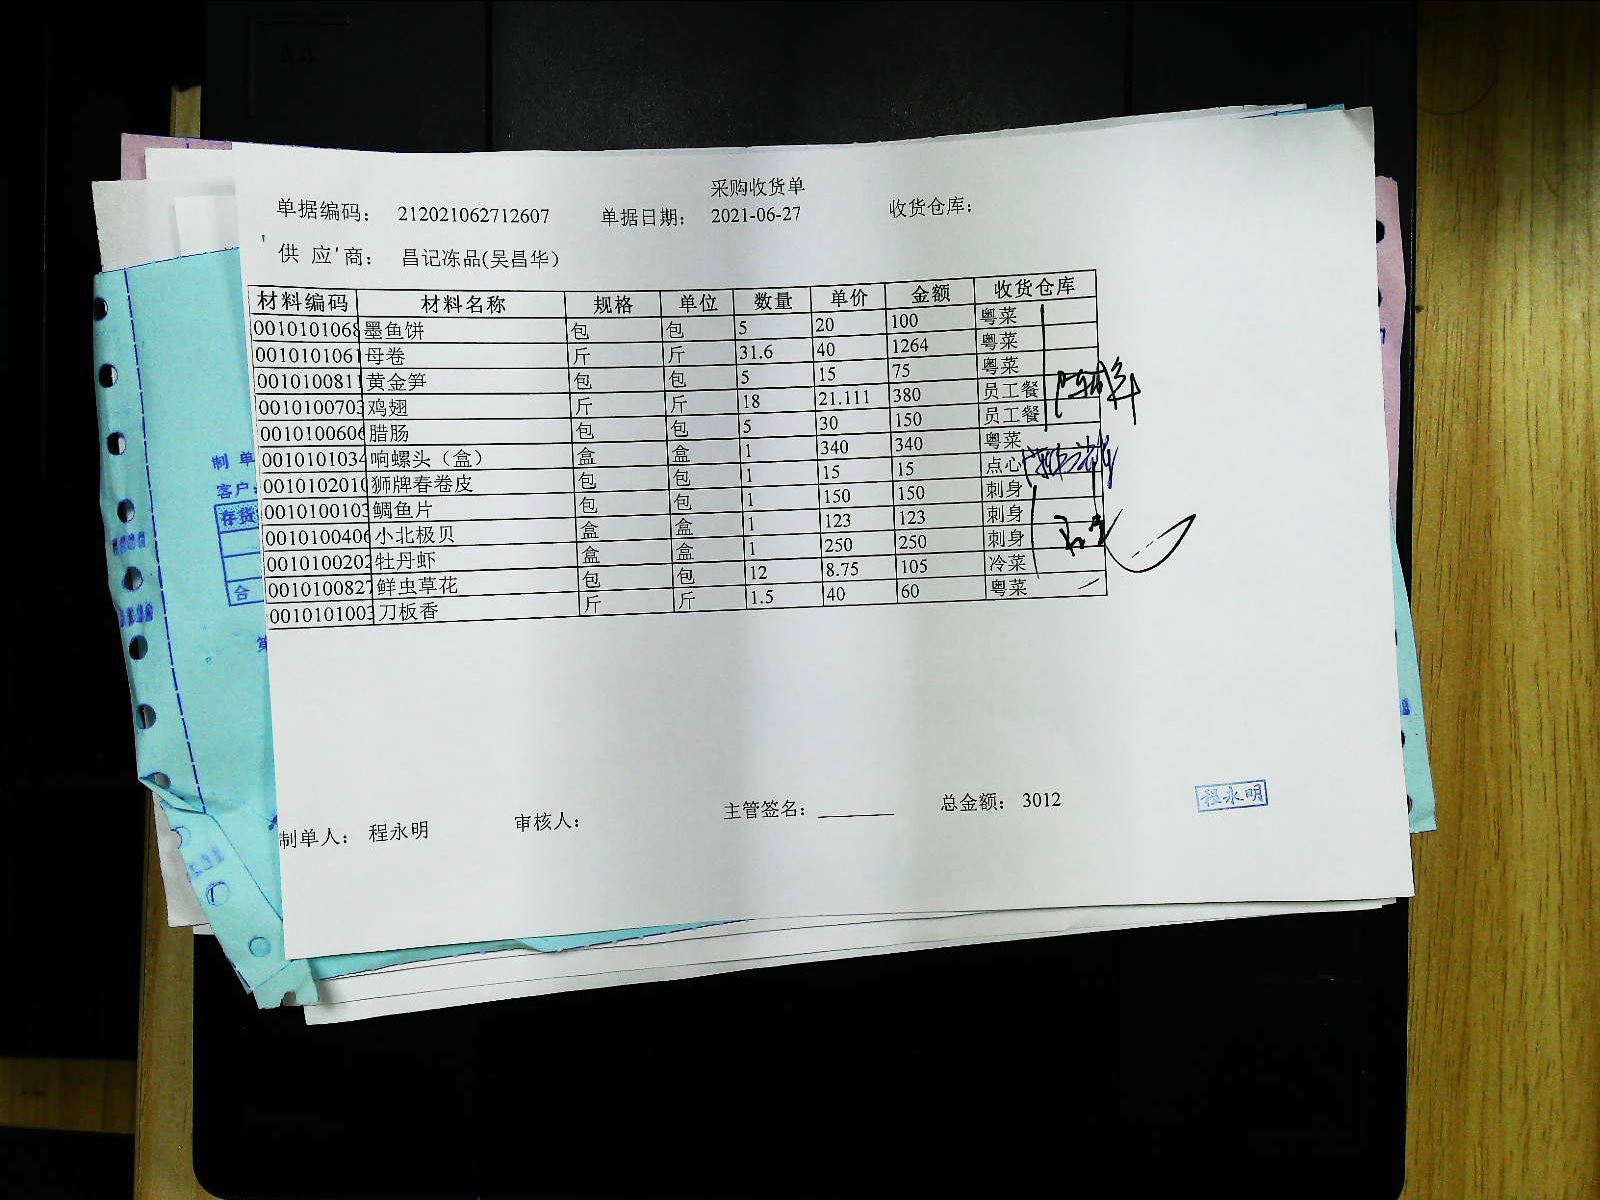 采购收货单
单据编码： 212021062712607 单据日期： 2021-06-27 收货仓库：
供 应 商： 昌记冻品(吴昌华)
材料编码 材料名称 规格 单位 数量 单价 金额 收货仓库
0010101068 墨鱼饼 包 包 5 20 100 粤菜
0010101061 母卷 斤 斤 31.6 40 1264 粤菜
0010100811 黄金笋 包 包 5 15 75 粤菜
0010100703 鸡翅 斤 斤 18 21.111 380 员工餐
0010100606 腊肠 包 包 5 30 150 员工餐
0010101034 响螺头（盒） 盒 盒 1 340 340 粤菜
0010102010 狮牌春卷皮 包 包 1 15 15 点心
0010100103 鲷鱼片 包 包 1 150 150 刺身
0010100406 小北极贝 盒 盒 1 123 123 刺身
0010100202 牡丹虾 盒 盒 1 250 250 刺身
0010100827 鲜虫草花 包 包 12 8.75 105 冷菜
0010101003 刀板香 斤 斤 1.5 40 60 粤菜
制单人： 程永明 审核人： 主管签名： 总金额： 3012
程永明
制 单
客户:
存货
合